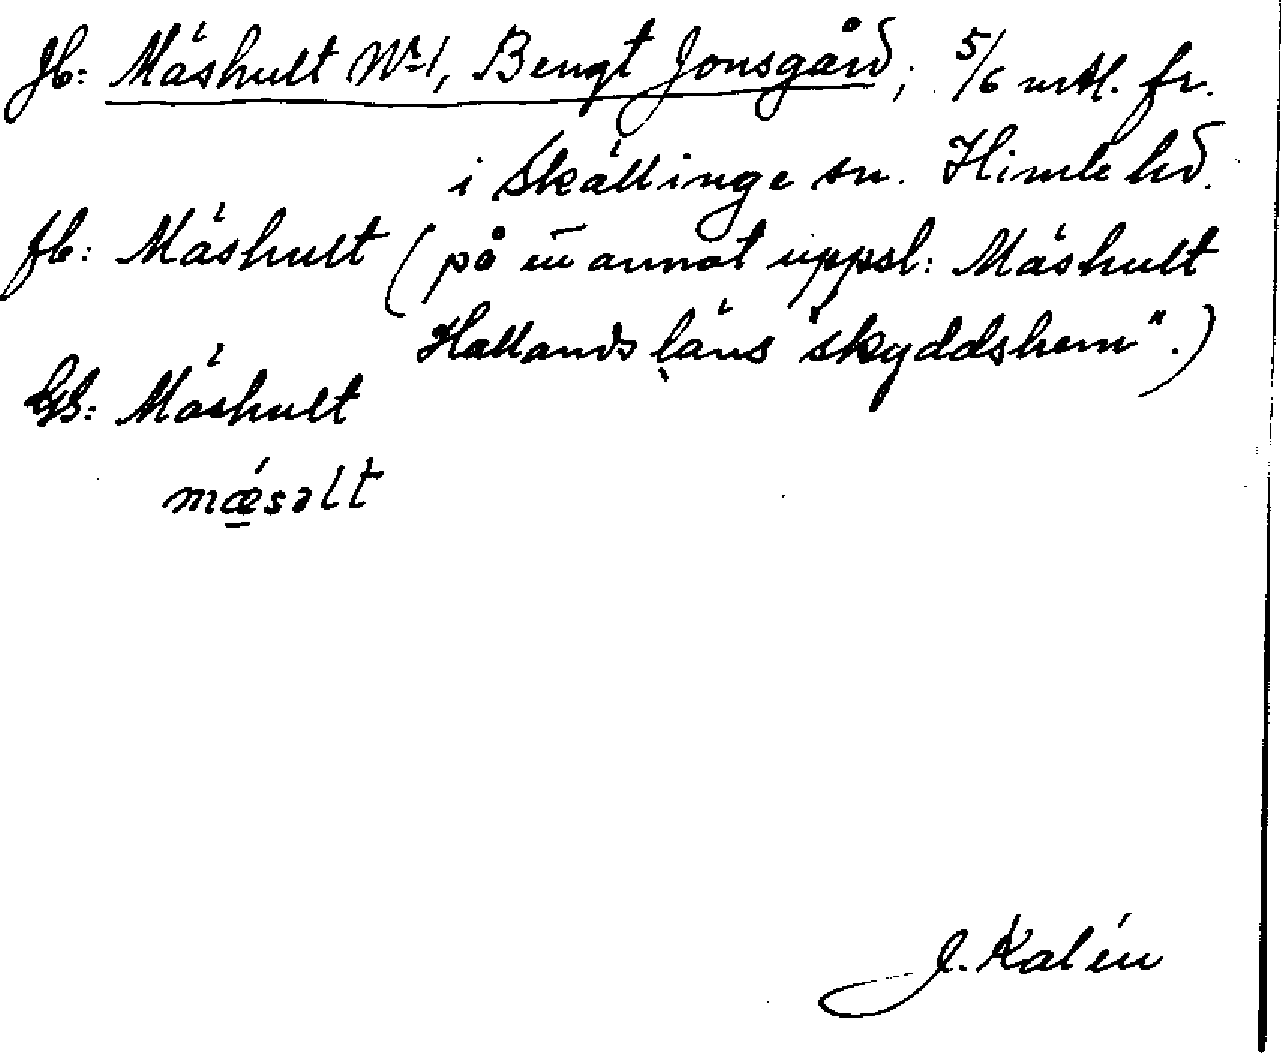 Jb: Mäshult No 1, Bengt Jonsgård; 5/6 mtl. fr.
i Skällinge sn. Himle hd.
fb: Mäshult (på ett annat uppsl: Mäshult
Hallands läns "skyddshem".)
GS: Mäshult
mǽsəlt
J. Kalén